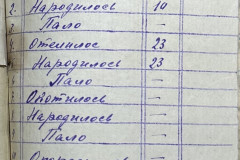 2. Народилось 10
" Пало —
Отелилос 23
Народилось 23
" Пало —
Опотылось
Народилось —
" Пало —
—